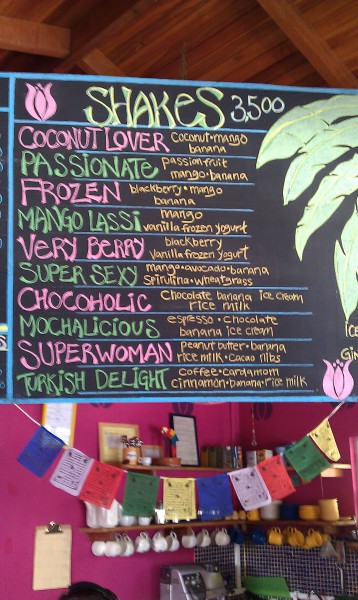 SHAKES 3,500
COCONUT LOVER coconut•mango
banana
PASSIONATE passionfruit
mango•banana
FROZEN blackberry•mango
banana
MANGO LASSI mango
vanilla frozen yogurt
VERY BERRY blackberry
vanilla frozen yogurt
SUPER SEXY mango•avocado•banana
spirulina•wheatgrass
CHOCOHOLIC chocolate banana ice cream
rice milk
MOCHALICIOUS espresso•chocolate
banana ice cream
SUPERWOMAN peanut butter•banana
rice milk•cacao nibs
TURKISH DELIGHT coffee•cardamom
cinnamon•banana•rice milk